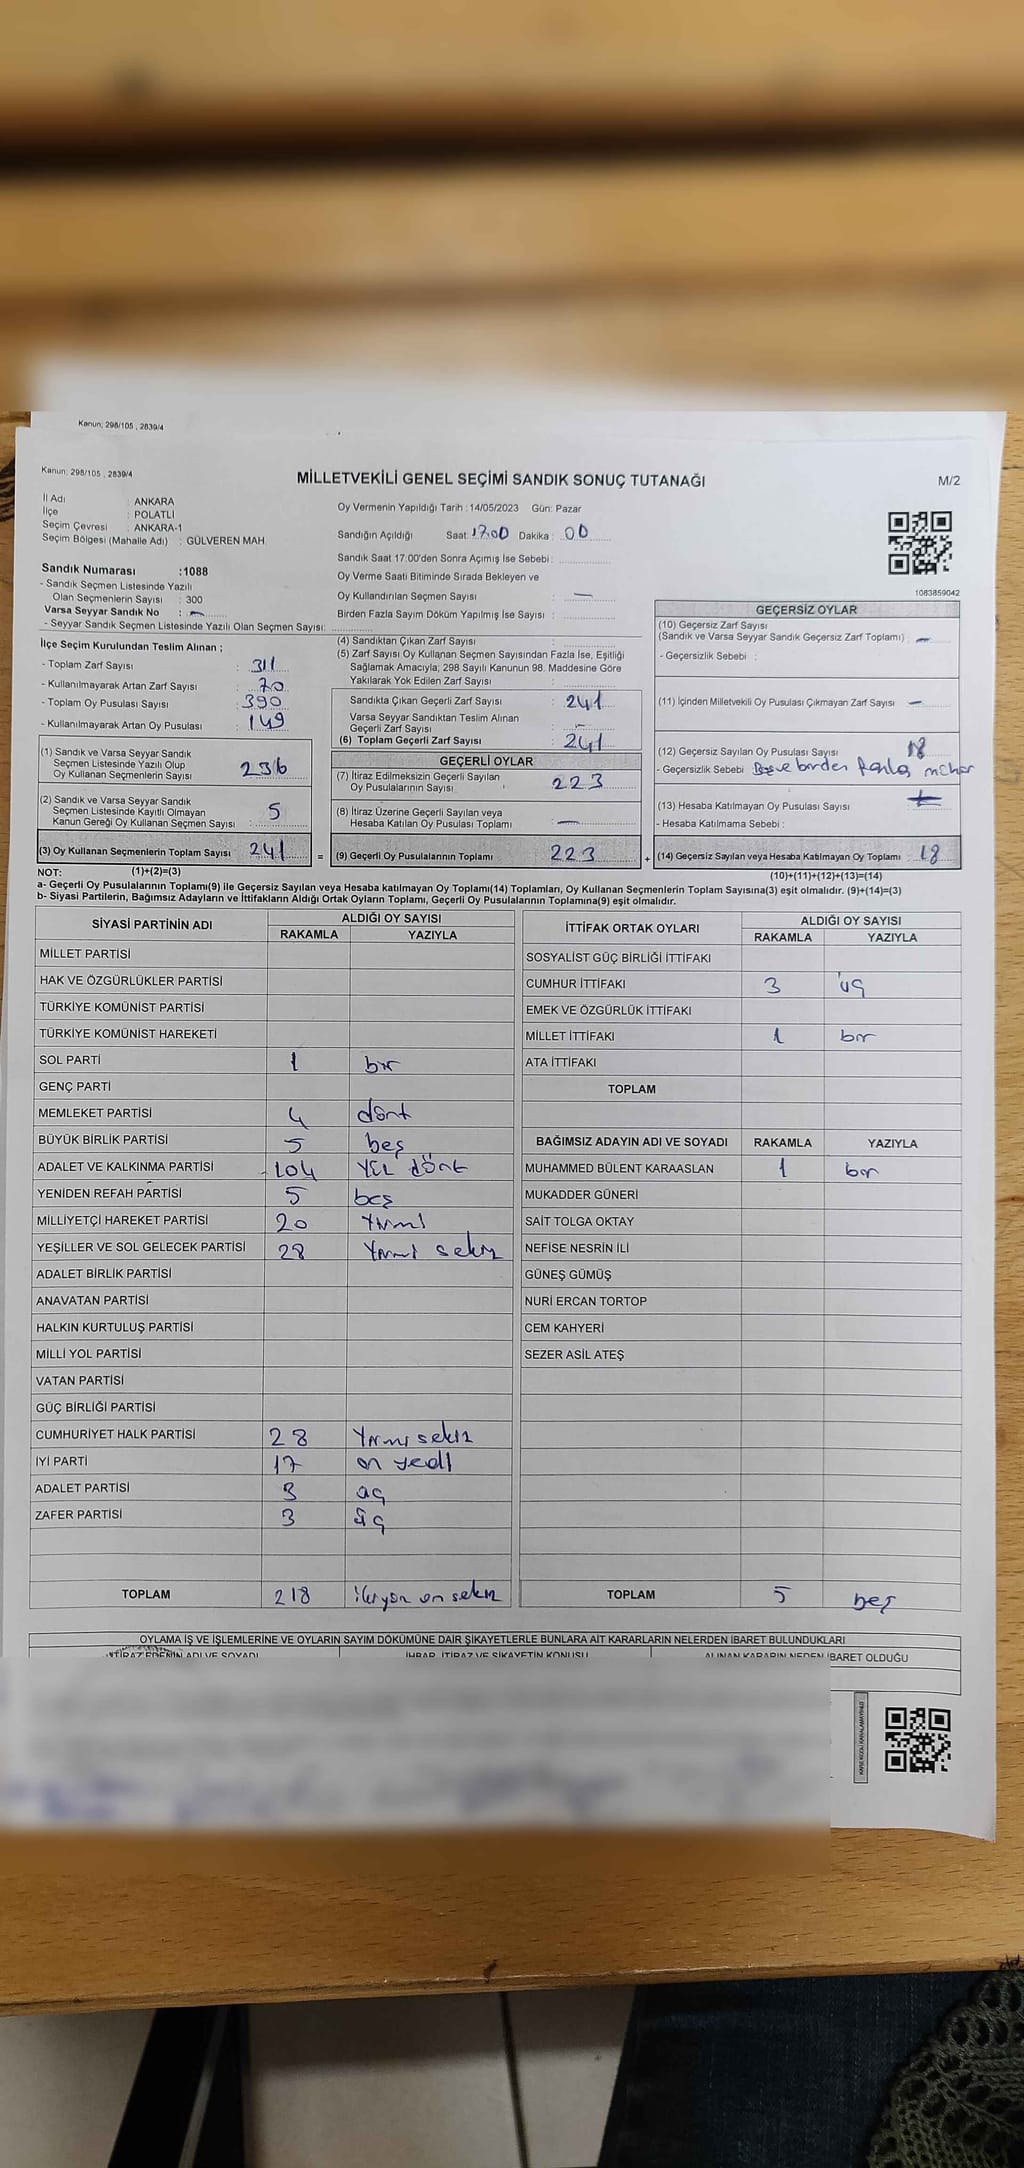 Kanun; 298/105 , 2839/4
Kanun; 298/105 , 2839/4
MİLLETVEKİLİ GENEL SEÇİMİ SANDIK SONUÇ TUTANAĞI
M/2
İl Adı : ANKARA
İlçe : POLATLI
Seçim Çevresi : ANKARA-1
Seçim Bölgesi (Mahalle Adı) : GÜLVEREN MAH
Sandık Numarası :1088
- Sandık Seçmen Listesinde Yazılı
Olan Seçmenlerin Sayısı : 300
Varsa Seyyar Sandık No : —
- Seyyar Sandık Seçmen Listesinde Yazılı Olan Seçmen Sayısı:
Oy Vermenin Yapıldığı Tarih : 14/05/2023 Gün: Pazar
Sandığın Açıldığı Saat: 17:00 Dakika : 00
Sandık Saat 17:00'den Sonra Açımış İse Sebebi :
Oy Verme Saati Bitiminde Sırada Bekleyen ve
Oy Kullandırılan Seçmen Sayısı : —
Birden Fazla Sayım Döküm Yapılmış İse Sayısı :
1083859042
İlçe Seçim Kurulundan Teslim Alınan ;
- Toplam Zarf Sayısı : 311
- Kullanılmayarak Artan Zarf Sayısı : 70
- Toplam Oy Pusulası Sayısı : 390
- Kullanılmayarak Artan Oy Pusulası : 149
(1) Sandık ve Varsa Seyyar Sandık
Seçmen Listesinde Yazılı Olup
Oy Kullanan Seçmenlerin Sayısı : 236
(2) Sandık ve Varsa Seyyar Sandık
Seçmen Listesinde Kayıtlı Olmayan
Kanun Gereği Oy Kullanan Seçmen Sayısı : 5
(3) Oy Kullanan Seçmenlerin Toplam Sayısı : 241
(4) Sandıktan Çıkan Zarf Sayısı :
(5) Zarf Sayısı Oy Kullanan Seçmen Sayısından Fazla İse, Eşitliği
Sağlamak Amacıyla; 298 Sayılı Kanunun 98. Maddesine Göre
Yakılarak Yok Edilen Zarf Sayısı :
Sandıkta Çıkan Geçerli Zarf Sayısı : 241
Varsa Seyyar Sandıktan Teslim Alınan
Geçerli Zarf Sayısı : —
(6) Toplam Geçerli Zarf Sayısı : 241
GEÇERLİ OYLAR
(7) İtiraz Edilmeksizin Geçerli Sayılan
Oy Pusulalarının Sayısı : 223
(8) İtiraz Üzerine Geçerli Sayılan veya
Hesaba Katılan Oy Pusulası Toplamı : —
= (9) Geçerli Oy Pusulalarının Toplamı : 223
GEÇERSİZ OYLAR
(10) Geçersiz Zarf Sayısı
(Sandık ve Varsa Seyyar Sandık Geçersiz Zarf Toplamı) : —
- Geçersizlik Sebebi :
(11) İçinden Milletvekili Oy Pusulası Çıkmayan Zarf Sayısı : —
(12) Geçersiz Sayılan Oy Pusulası Sayısı : 18
- Geçersizlik Sebebi : Boş ve birden fazla mühür
(13) Hesaba Katılmayan Oy Pusulası Sayısı :
- Hesaba Katılmama Sebebi :
+ (14) Geçersiz Sayılan veya Hesaba Katılmayan Oy Toplamı : 18
NOT: (1)+(2)=(3)
(10)+(11)+(12)+(13)=(14)
a- Geçerli Oy Pusulalarının Toplamı(9) ile Geçersiz Sayılan veya Hesaba katılmayan Oy Toplamı(14) Toplamları, Oy Kullanan Seçmenlerin Toplam Sayısına(3) eşit olmalıdır. (9)+(14)=(3)
b- Siyasi Partilerin, Bağımsız Adayların ve İttifakların Aldığı Ortak Oyların Toplamı, Geçerli Oy Pusulalarının Toplamına(9) eşit olmalıdır.
SİYASİ PARTİNİN ADI ALDIĞI OY SAYISI
RAKAMLA YAZIYLA
MİLLET PARTİSİ
HAK VE ÖZGÜRLÜKLER PARTİSİ
TÜRKİYE KOMÜNİST PARTİSİ
TÜRKİYE KOMÜNİST HAREKETİ
SOL PARTİ 1 bir
GENÇ PARTİ
MEMLEKET PARTİSİ 4 dört
BÜYÜK BİRLİK PARTİSİ 5 beş
ADALET VE KALKINMA PARTİSİ 104 YÜZ dört
YENİDEN REFAH PARTİSİ 5 beş
MİLLİYETÇİ HAREKET PARTİSİ 20 Yirmi
YEŞİLLER VE SOL GELECEK PARTİSİ 28 Yirmi sekiz
ADALET BİRLİK PARTİSİ
ANAVATAN PARTİSİ
HALKIN KURTULUŞ PARTİSİ
MİLLİ YOL PARTİSİ
VATAN PARTİSİ
GÜÇ BİRLİĞİ PARTİSİ
CUMHURİYET HALK PARTİSİ 28 Yirmi sekiz
İYİ PARTİ 17 on yedi
ADALET PARTİSİ 3 üç
ZAFER PARTİSİ 3 üç
TOPLAM 218 ikiyüz on sekiz
İTTİFAK ORTAK OYLARI ALDIĞI OY SAYISI
RAKAMLA YAZIYLA
SOSYALİST GÜÇ BİRLİĞİ İTTİFAKI
CUMHUR İTTİFAKI 3 üç
EMEK VE ÖZGÜRLÜK İTTİFAKI
MİLLET İTTİFAKI 1 bir
ATA İTTİFAKI
TOPLAM
BAĞIMSIZ ADAYIN ADI VE SOYADI RAKAMLA YAZIYLA
MUHAMMED BÜLENT KARAASLAN 1 bir
MUKADDER GÜNERİ
SAİT TOLGA OKTAY
NEFİSE NESRİN İLİ
GÜNEŞ GÜMÜŞ
NURİ ERCAN TORTOP
CEM KAHYERİ
SEZER ASİL ATEŞ
TOPLAM 5 beş
OYLAMA İŞ VE İŞLEMLERİNE VE OYLARIN SAYIM DÖKÜMÜNE DAİR ŞİKAYETLERLE BUNLARA AİT KARARLARIN NELERDEN İBARET BULUNDUKLARI
İTİRAZ EDENİN ADI VE SOYADI İHBAR, İTİRAZ VE ŞİKAYETİN KONUSU ALINAN KARARIN NEDEN İBARET OLDUĞU